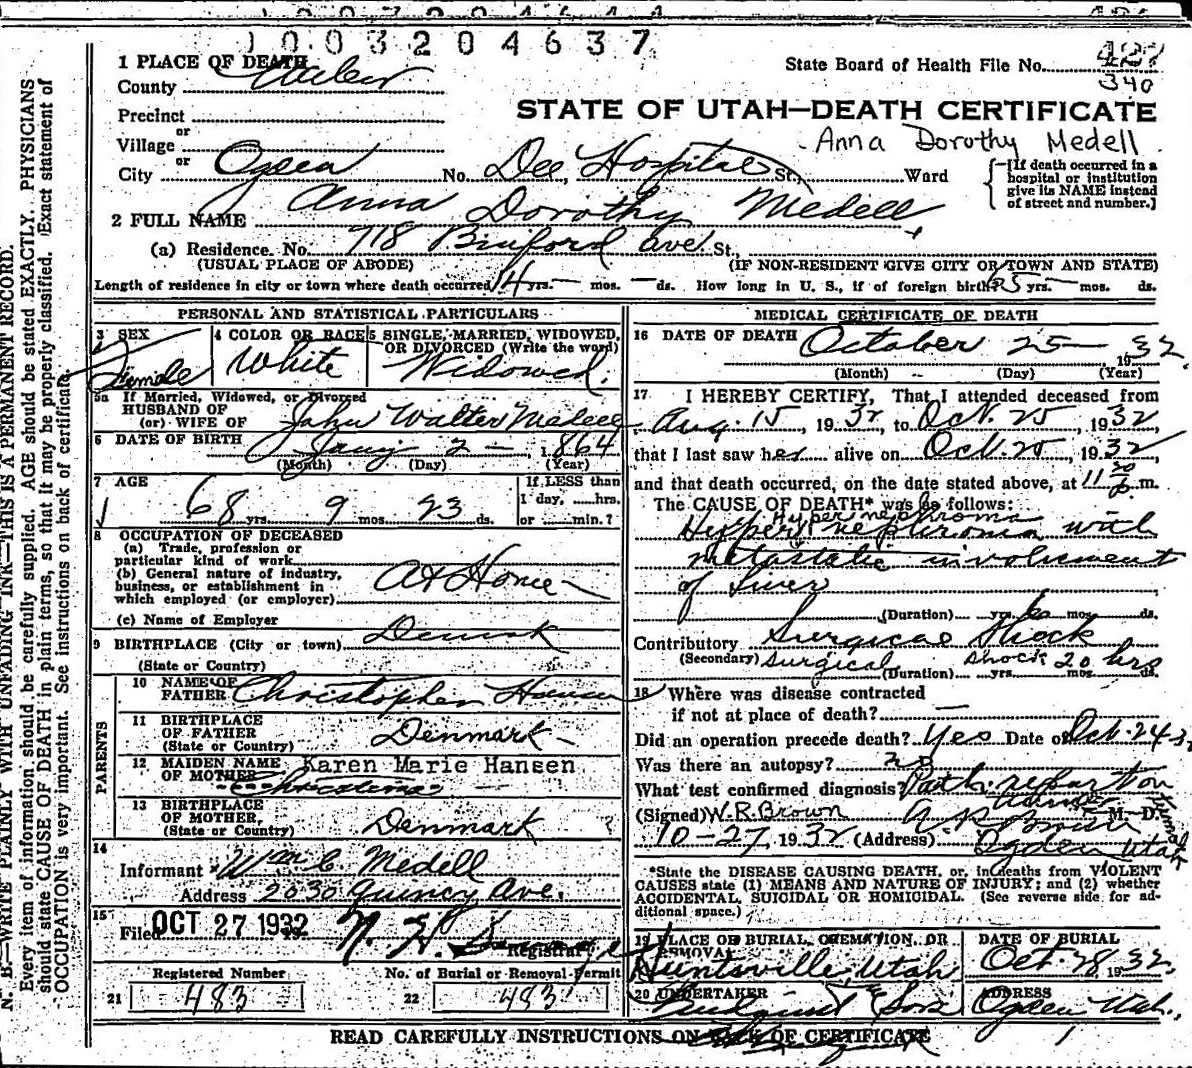 1003204637
1 PLACE OF DEATH
County Weber
State Board of Health File No. 427
340
Precinct
or
Village
STATE OF UTAH—DEATH CERTIFICATE
Anna Dorothy Medell
or
City Ogden No. Dee Hospital St. Ward
[If death occurred in a hospital or institution give its NAME instead of street and number.]
2 FULL NAME Anna Dorothy Medell
(a) Residence. No. 718 Binford Ave. St.
(USUAL PLACE OF ABODE) (IF NON-RESIDENT GIVE CITY OR TOWN AND STATE)
Length of residence in city or town where death occurred 14 yrs. — mos. — ds. How long in U. S., if of foreign birth? 65 yrs. mos. ds.
PERSONAL AND STATISTICAL PARTICULARS
3 SEX
Female
4 COLOR OR RACE
White
5 SINGLE, MARRIED, WIDOWED, OR DIVORCED (Write the word)
Widowed.
5a If Married, Widowed, or Divorced
HUSBAND OF
(or) WIFE OF John Walter Medell
6 DATE OF BIRTH Jany 2 — 1864
(Month) (Day) (Year)
7 AGE
68 yrs. 9 mos. 23 ds.
If LESS than
1 day, ......hrs.
or ......min.?
8 OCCUPATION OF DECEASED
(a) Trade, profession or
particular kind of work
(b) General nature of industry,
business, or establishment in
which employed (or employer)
At Home
(c) Name of Employer
9 BIRTHPLACE (City or town) Denmark
(State or Country)
PARENTS
10 NAME OF
FATHER Christopher Hansen
11 BIRTHPLACE
OF FATHER
(State or Country) Denmark
12 MAIDEN NAME
OF MOTHER Karen Marie Hansen
Christina
13 BIRTHPLACE
OF MOTHER,
(State or Country) Denmark ?
14
Informant Wm C Medell
Address 2030 Quincy Ave.
15
Filed OCT 27 1932
Registrar
Registered Number
21 483
No. of Burial or Removal Permit
22 483
MEDICAL CERTIFICATE OF DEATH
16 DATE OF DEATH October 25 — 1932
(Month) (Day) (Year)
17 I HEREBY CERTIFY, That I attended deceased from
Aug. 15, 1932, to Oct. 25, 1932
that I last saw her alive on Oct. 25, 1932,
and that death occurred, on the date stated above, at 11 20 P m.
The CAUSE OF DEATH* was as follows:
Hyper nephroma
Hyper nephroma with
metastatic involvement
of Liver
(Duration) yrs. 6 mos. ds.
Contributory Surgical Shock
(Secondary) Surgical shock 20 hrs
(Duration) yrs. mos. ds.
18 Where was disease contracted
if not at place of death? —
Did an operation precede death? Yes Date of Oct. 24 32
Was there an autopsy? no
What test confirmed diagnosis? Path. report on
removed tumor
(Signed) W.R. Brown M. D.
10-27, 1932 (Address) Ogden Utah
*State the DISEASE CAUSING DEATH, or, in deaths from VIOLENT
CAUSES state (1) MEANS AND NATURE OF INJURY; and (2) whether
ACCIDENTAL, SUICIDAL OR HOMICIDAL. (See reverse side for ad-
ditional space.)
19 PLACE OF BURIAL, CREMATION, OR
REMOVAL
Huntsville Utah
DATE OF BURIAL
Oct. 28, 1932.
20 UNDERTAKER
Lindquist & Sons
ADDRESS
Ogden Utah.
READ CAREFULLY INSTRUCTIONS ON BACK OF CERTIFICATE
N. B.—WRITE PLAINLY WITH UNFADING INK—THIS IS A PERMANENT RECORD.
Every item of information should be carefully supplied. AGE should be stated EXACTLY. PHYSICIANS
should state CAUSE OF DEATH in plain terms, so that it may be properly classified. Exact statement of
OCCUPATION is very important. See instructions on back of certificate.